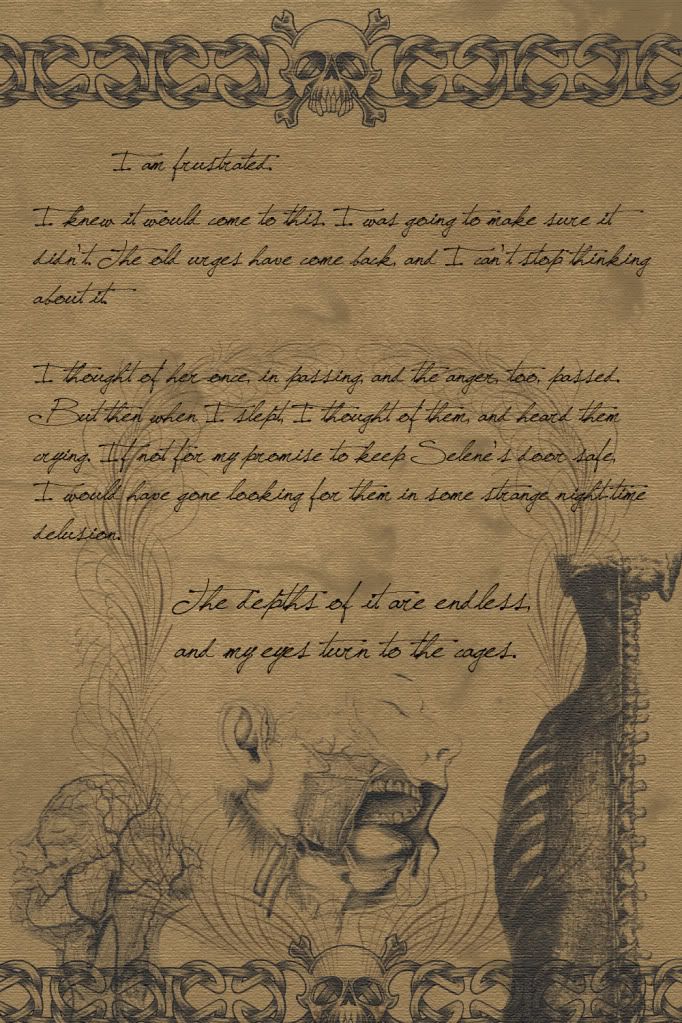 I am frustrated.
I knew it would come to this. I was going to make sure it
didn't. The old urges have come back, and I can't stop thinking
about it.
I thought of her once, in passing, and the anger, too, passed.
But then when I slept, I thought of them, and heard them
crying. If not for my promise to keep Selene's door safe,
I would have gone looking for them in some strange night-time
delusion.
The depths of it are endless,
and my eyes turn to the cages.